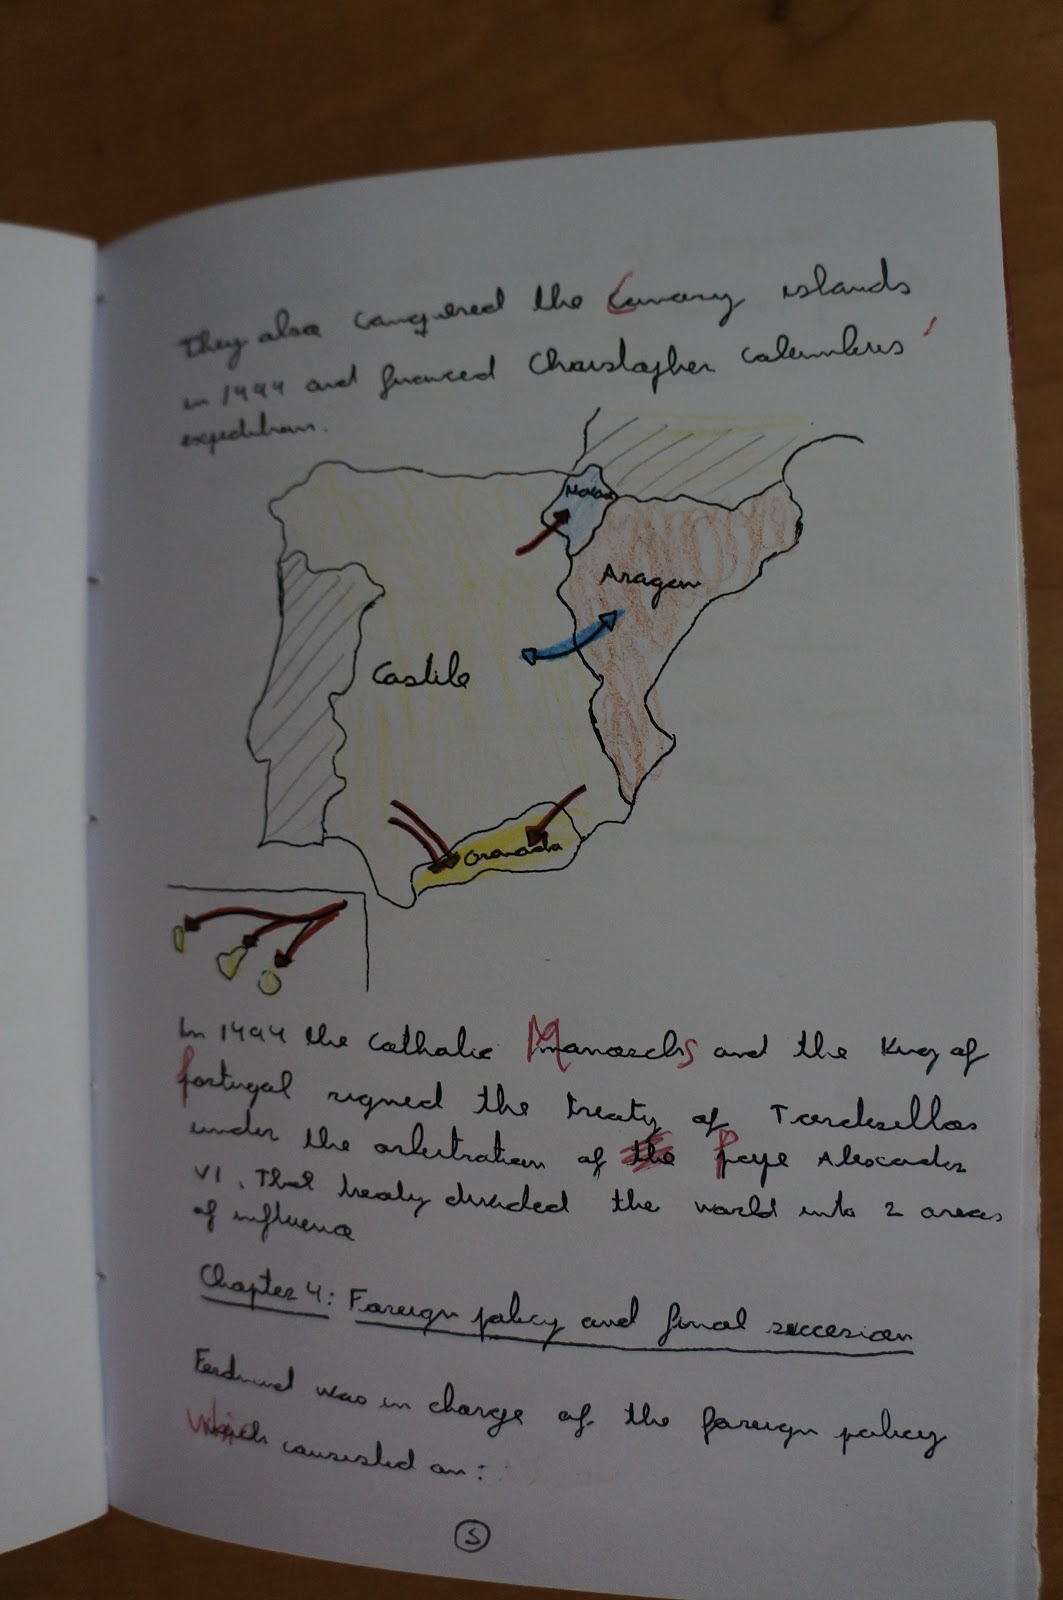 They also conquered the Canary islands
in 1494 and financed Christopher Columbus'
expedition.
Navarre
Aragon
Castile
Granada
In 1494 the Catholic Monarchs and the King of
Portugal signed the treaty of Tordesillas
under the arbitration of the Pope Alexander
VI. That treaty divided the world into 2 areas
of influence
Chapter 4: Foreign policy and final succesion
Ferdinand was in charge of the foreign policy
which consisted on:
5